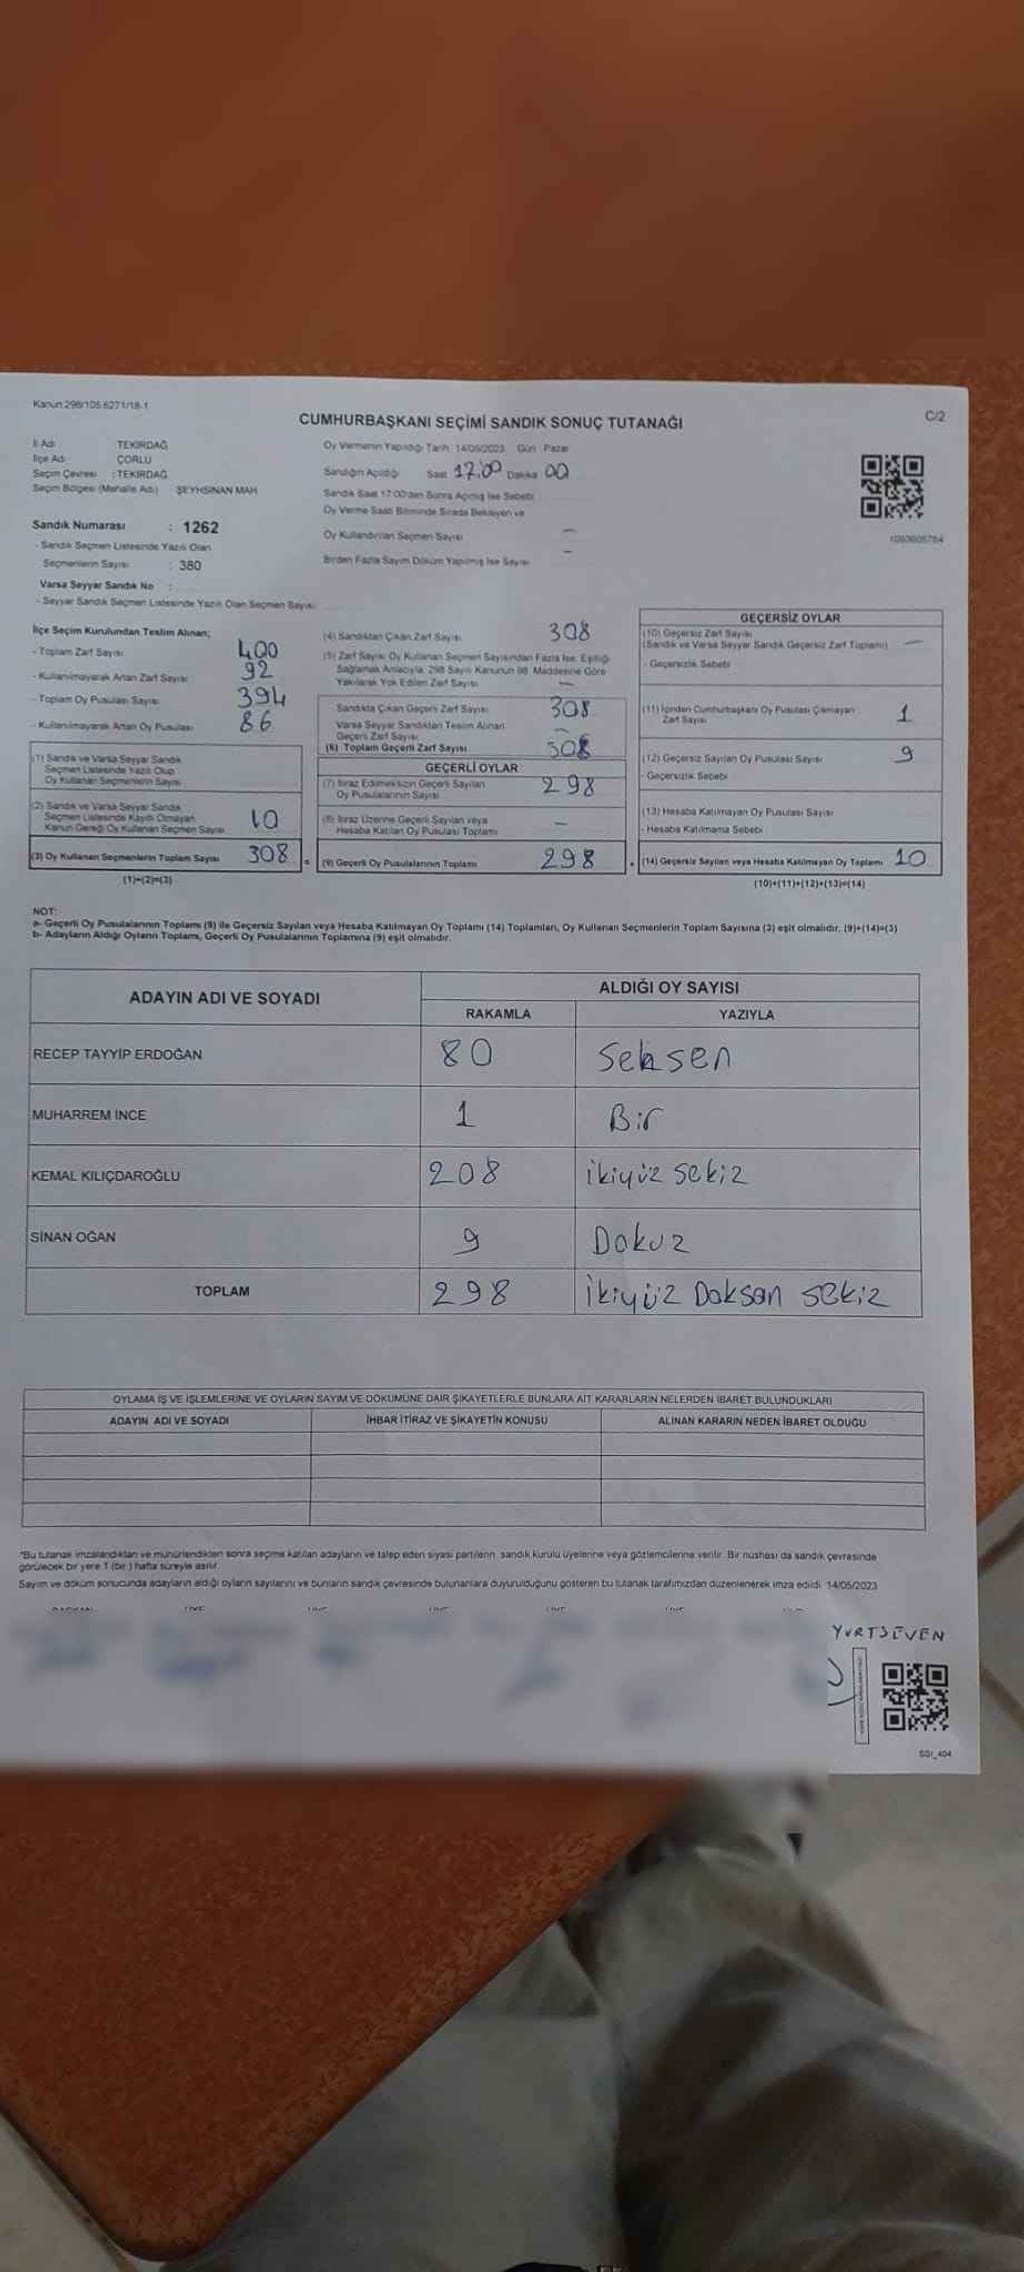 Kanun 298/105 6271/18-1
C/2
CUMHURBAŞKANI SEÇİMİ SANDIK SONUÇ TUTANAĞI
İl Adı TEKİRDAĞ
İlçe Adı ÇORLU
Seçim Çevresi : TEKİRDAĞ
Seçim Bölgesi (Mahalle Adı) ŞEYHSİNAN MAH
Sandık Numarası : 1262
- Sandık Seçmen Listesinde Yazılı Olan
Seçmenlerin Sayısı : 380
Varsa Seyyar Sandık No :
- Seyyar Sandık Seçmen Listesinde Yazılı Olan Seçmen Sayısı
Oy Vermenin Yapıldığı Tarih 14/05/2023 Gün Pazar
Sandığın Açıldığı Saat 17:00 Dakika 00
Sandık Saat 17:00'den Sonra Açılmış İse Sebebi
Oy Verme Saati Bitiminde Sırada Bekleyen ve
Oy Kullandırılan Seçmen Sayısı —
Birden Fazla Sayım Döküm Yapılmış İse Sayısı —
İlçe Seçim Kurulundan Teslim Alınan;
- Toplam Zarf Sayısı 400
- Kullanılmayarak Artan Zarf Sayısı 92
- Toplam Oy Pusulası Sayısı 394
- Kullanılmayarak Artan Oy Pusulası 86
(1) Sandık ve Varsa Seyyar Sandık
Seçmen Listesinde Yazılı Olup
Oy Kullanan Seçmenlerin Sayısı
(2) Sandık ve Varsa Seyyar Sandık
Seçmen Listesinde Kayıtlı Olmayan
Kanun Gereği Oy Kullanan Seçmen Sayısı 10
(3) Oy Kullanan Seçmenlerin Toplam Sayısı 308
(1)+(2)=(3)
(4) Sandıktan Çıkan Zarf Sayısı 308
(5) Zarf Sayısı Oy Kullanan Seçmen Sayısından Fazla İse, Eşitliği
Sağlamak Amacıyla, 298 Sayılı Kanunun 98. Maddesine Göre
Yakılarak Yok Edilen Zarf Sayısı —
Sandıkta Çıkan Geçerli Zarf Sayısı 308
Varsa Seyyar Sandıktan Teslim Alınan
Geçerli Zarf Sayısı —
(6) Toplam Geçerli Zarf Sayısı 308
GEÇERLİ OYLAR
(7) İtiraz Edilmeksizin Geçerli Sayılan
Oy Pusulalarının Sayısı 298
(8) İtiraz Üzerine Geçerli Sayılan veya
Hesaba Katılan Oy Pusulası Toplamı —
(9) Geçerli Oy Pusulalarının Toplamı 298
GEÇERSİZ OYLAR
(10) Geçersiz Zarf Sayısı
(Sandık ve Varsa Seyyar Sandık Geçersiz Zarf Toplamı) —
- Geçersizlik Sebebi
(11) İçinden Cumhurbaşkanı Oy Pusulası Çıkmayan
Zarf Sayısı 1
(12) Geçersiz Sayılan Oy Pusulası Sayısı 9
- Geçersizlik Sebebi
(13) Hesaba Katılmayan Oy Pusulası Sayısı
- Hesaba Katılmama Sebebi
(14) Geçersiz Sayılan veya Hesaba Katılmayan Oy Toplamı 10
(10)+(11)+(12)+(13)=(14)
NOT:
a- Geçerli Oy Pusulalarının Toplamı (9) ile Geçersiz Sayılan veya Hesaba Katılmayan Oy Toplamı (14) Toplamları, Oy Kullanan Seçmenlerin Toplam Sayısına (3) eşit olmalıdır. (9)+(14)=(3)
b- Adayların Aldığı Oyların Toplamı, Geçerli Oy Pusulalarının Toplamına (9) eşit olmalıdır.
ADAYIN ADI VE SOYADI
ALDIĞI OY SAYISI
RAKAMLA YAZIYLA
RECEP TAYYİP ERDOĞAN 80 Seksen
MUHARREM İNCE 1 Bir
KEMAL KILIÇDAROĞLU 208 ikiyüz sekiz
SİNAN OĞAN 9 Dokuz
TOPLAM 298 İkiyüz Doksan sekiz
OYLAMA İŞ VE İŞLEMLERİNE VE OYLARIN SAYIM VE DÖKÜMÜNE DAİR ŞİKAYETLERLE BUNLARA AİT KARARLARIN NELERDEN İBARET BULUNDUKLARI
ADAYIN ADI VE SOYADI İHBAR İTİRAZ VE ŞİKAYETİN KONUSU ALINAN KARARIN NEDEN İBARET OLDUĞU
*Bu tutanak imzalandıktan ve mühürlendikten sonra seçime katılan adayların ve talep eden siyasi partilerin sandık kurulu üyelerine veya gözlemcilerine verilir. Bir nüshası da sandık çevresinde
görülecek bir yere 1 (bir) hafta süreyle asılır.
Sayım ve döküm sonucunda adayların aldığı oyların sayılarını ve bunların sandık çevresinde bulunanlara duyurulduğunu gösteren bu tutanak tarafımızdan düzenlenerek imza edildi. 14/05/2023
YURTSEVEN
SSI_404